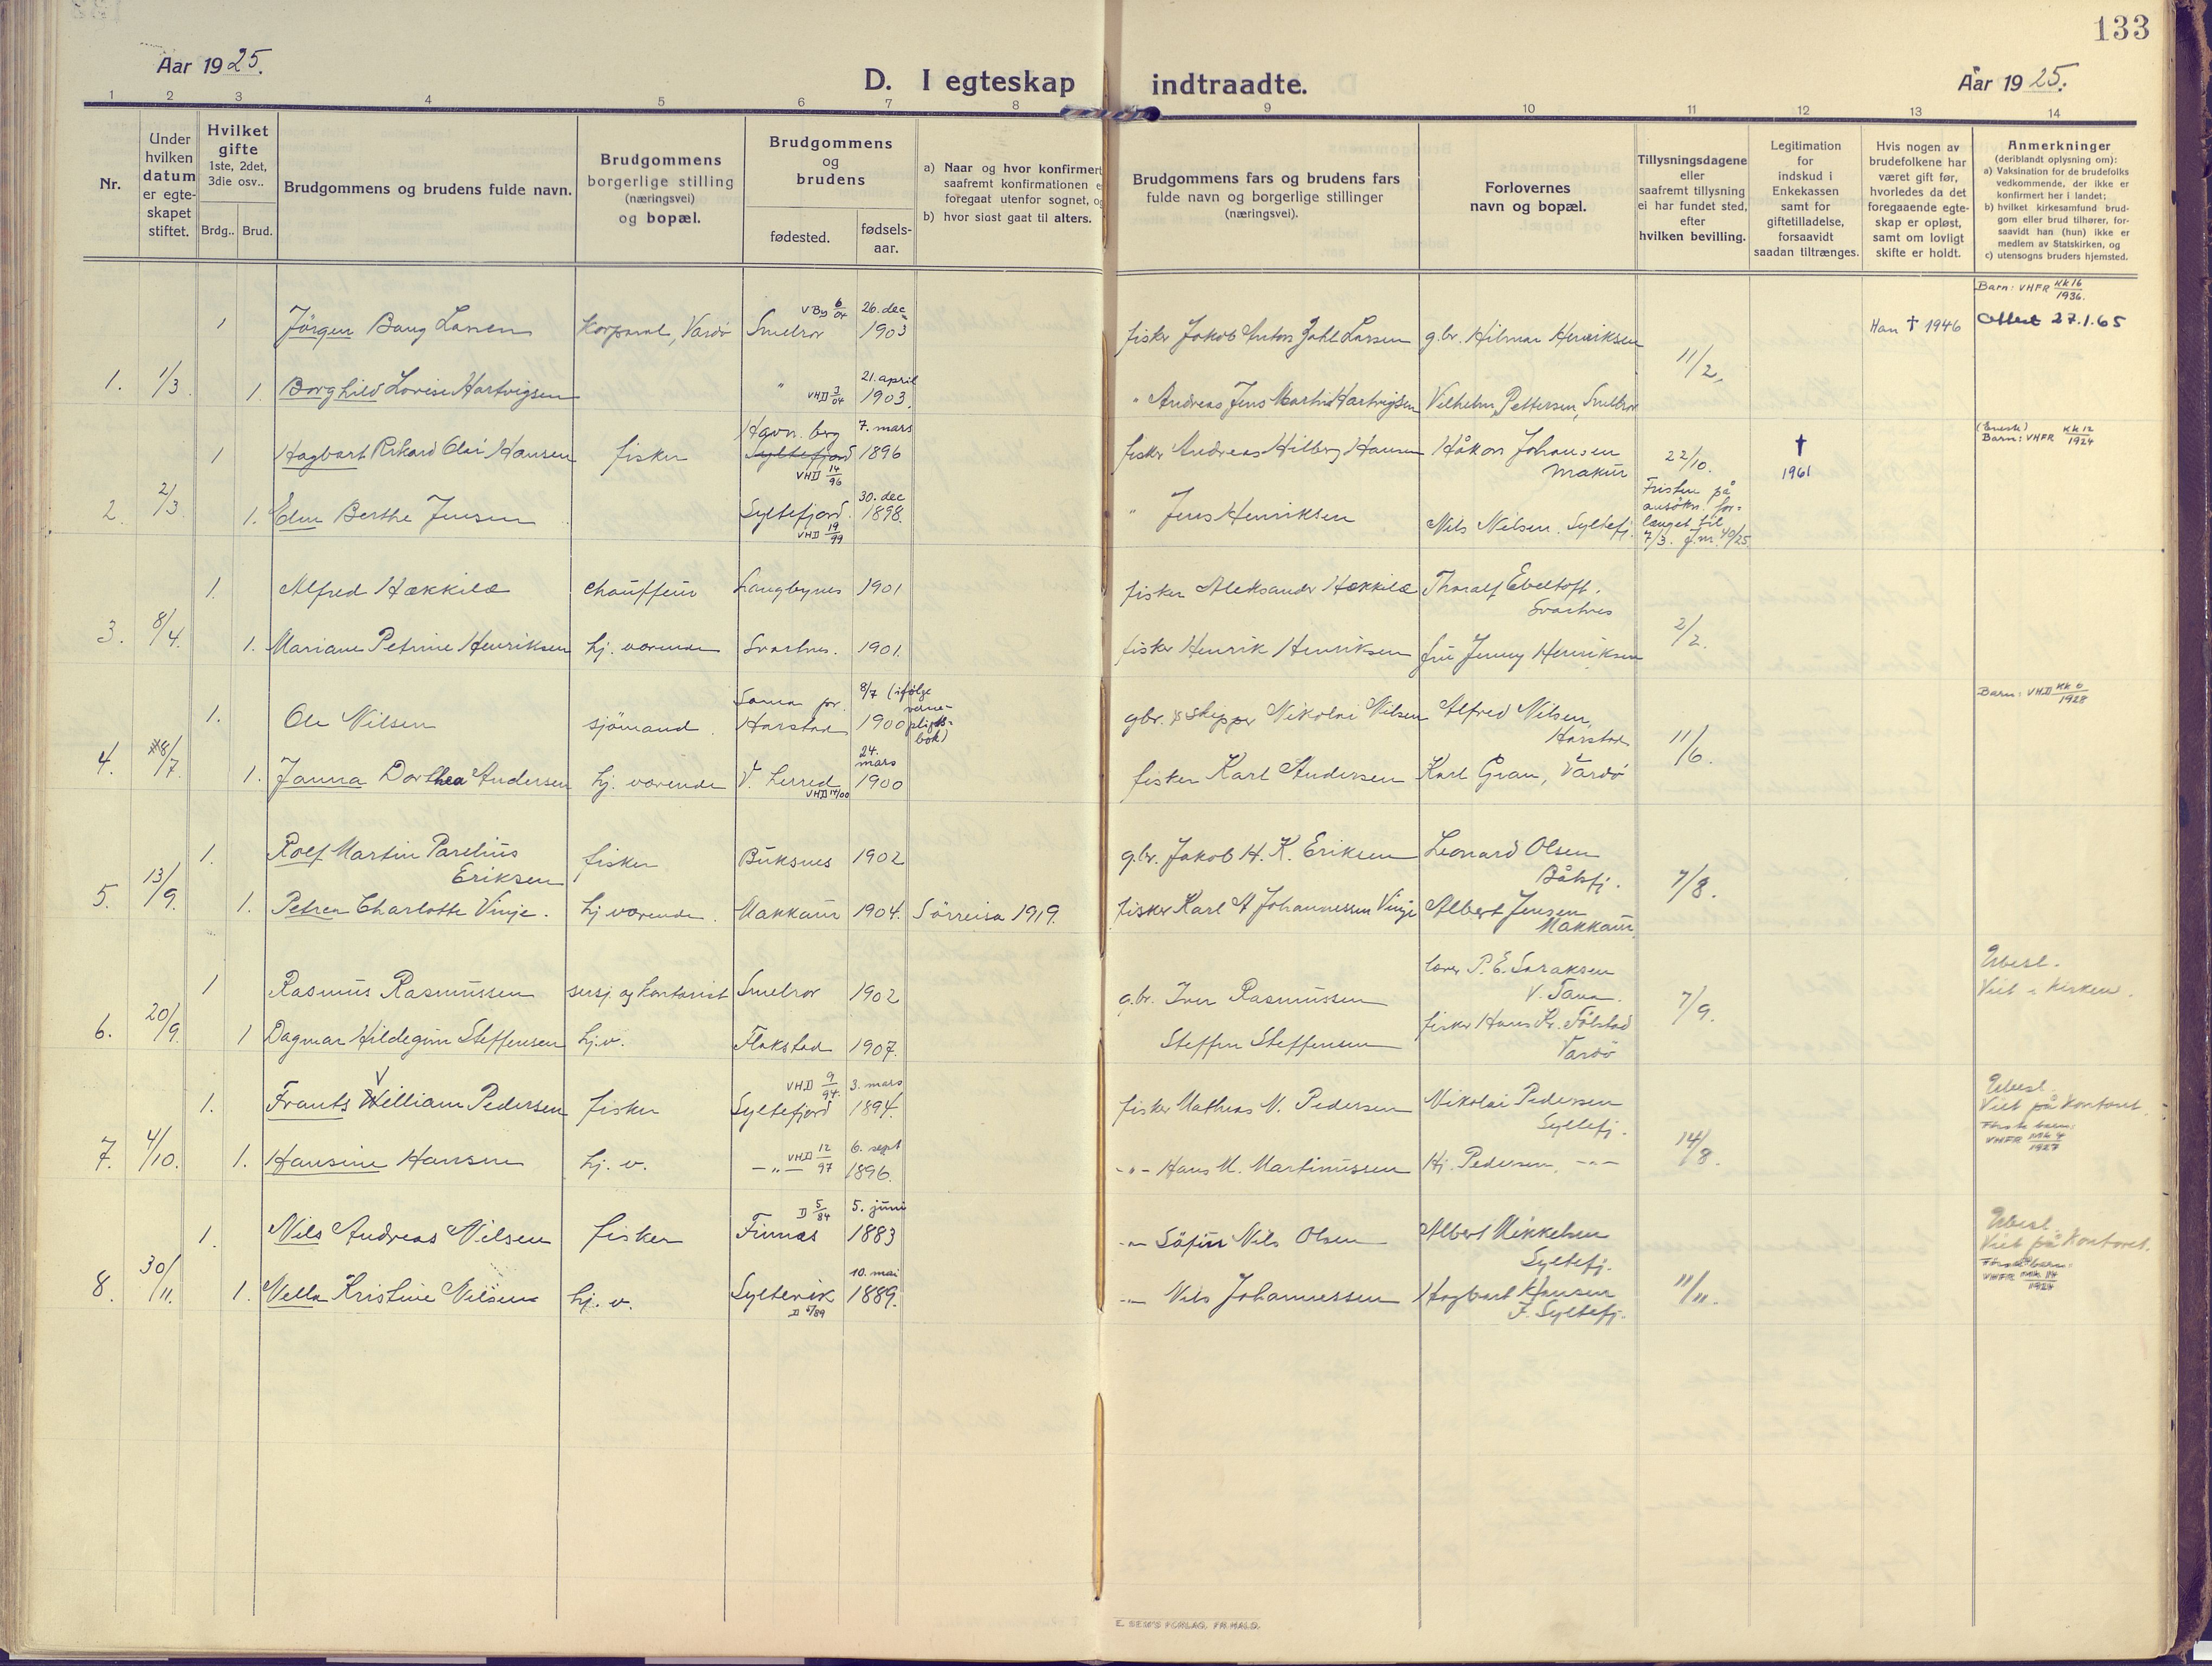 133
Aar 1925.
D. I egteskap indtraadte.
Aar 1925.
1 2 3 4 5 6 7 8 9 10 11 12 13 14
Nr.
Under hvilken datum er egte-skapet stiftet.
Hvilket gifte 1ste, 2det, 3die osv..
Brdg.. Brud.
Brudgommens og brudens fulde navn.
Brudgommens borgerlige stilling (næringsvei) og bopæl.
Brudgommens og brudens
fødested.
fødsels-aar.
a) Naar og hvor konfirmert
saafremt konfirmationen
foregaat utenfor sognet,
b) hvor sidst gaat til alters.
Brudgommens fars og brudens fars
fulde navn og borgerlige stillinger
(næringsvei).
Forlovernes
navn og bopæl.
Tillysningsdagene
eller
saafremt tillysning
ei har fundet sted,
efter
hvilken bevilling.
Legitimation
for
indskud i
Enkekassen
samt for
giftetilladelse,
forsaavidt
saadan tiltrænges.
Hvis nogen av
brudefolkene har
været gift før,
hvorledes da det
foregaaende egte-
skap er opløst,
samt om lovligt
skifte er holdt.
Anmerkninger
(deriblandt oplysning om):
a) Vaksination for de brudefolks
vedkommende, der ikke er
konfirmert her i landet;
b) hvilket kirkesamfund brud-
gom eller brud tilhører, for-
saavidt han (hun) ikke er
medlem av Statskirken, og
c) utensogns bruders hjemsted.
Barn: VHFR KK16/1936.
1 Jörgen Bang Larsen korporal, Vardö Smelror VBy 6/04 26. dec 1903 fisker Jakob Anton Dahl Larsen g.br. Hilmar Henriksen Han † 1946 Attest 27.1.65
1. 1/3 1. Borghild Lovise Hartvigsen " VHD 3/04 21. april 1903. " Andreas Jens Martin Hartvigsen Vilhelm Pettersen, Smelror 11/2.
1 Hagbart Rikard Olai Hansen fisker Havn. berg Syltefjord VHD 14/96 7. mars 1896 fisker Andreas Hilberg Hansen Håkon Johansen Makur 22/10. † 1961 Barn: VHFR KK12/1924
2. 2/3. 1. Edin Berthe Jensen Syltefjord. VHD 19/99 30. dec 1898. " Jens Henriksen Nils Nilsen. Syltefj. Fristen på ansökn. for-
længet til
7/3. j.nr. 40/25
1. Alfred Hækkilæ chauffeur Langbynes 1901 fisker Aleksander Hækkilæ Thoralf Ebeltoft. Svartnes
3. 8/4. 1. Mariane Petrine Henriksen hj. værende Svartnes. 1901. fisker Henrik Henriksen fru Jenny Henriksen 2/2.
1. Ole Nilsen sjömand. Sama pr. Harstad 8/7 1900 (ifölge verne-
pligts-
bok) gbr. & skipper Nikolai Nilsen Alfred Nilsen, Harstad Barn: VHD KK 6/1928
4. 8/7. 1. Janna Dorthea Andersen hj. værende V. herred VHD 14/00 24. mars 1900 fisker Karl Andersen Karl Gran, Vardö 11/6.
1. Rolf Martin Parelius Eriksen fisker Buksnes 1902 g.br. Jakob H. K. Eriksen Leonard Olsen Båtsfj.
5. 13/9. 1. Petrea Charlotte Vinje. hj. værende. Makkaur 1904. Sörreisa 1919. fisker Karl A Johannessen Vinje Albert Jensen Makkaur. 7/8.
1 Rasmus Rasmussen sersj. og kontorist Smelror 1902 g.br. Iver Rasmussen lærer P. E. Isaksen V. Tana. Ubesl. Viet i kirken.
6. 20/9. 1 Dagmar Hildegun Steffensen hj.v. Flakstad 1907. Steffen Steffensen fisker Hans Kr. Tölstad Vardö 7/9.
1. Frants William Pedersen V fisker Syltefjord VHD 9/94. 3. mars 1894. fisker Mathias N. Pedersen Nikolai Pedersen Syltefj. Ubesl. Viet på kontoret.
7. 4/10. 1. Hansine Hansen hj. v. — „ — VHD 12/97 6. sept 1896. -„- Hans M. Martinussen Hj. Pedersen, -„- 14/8. Første barn: VHFR MK 4/1927
1. Nils Andreas Nilsen fisker Finnes D 5/84 5. juni 1883 -„- Söfin Nils Olsen Albert Mikkelsen Syltefj. Ubesl. Viet på kontoret.
8. 30/11. 1. Vella Kristine Nilsen hj. v. Syltevik D 6/89 10. mai 1889. -„- Nils Johannessen Hagbart Hansen F. Syltefj. 11/11. Første barn: VHFR MK 14/1924
E. SEM'S FORLAG, FR.HALD.